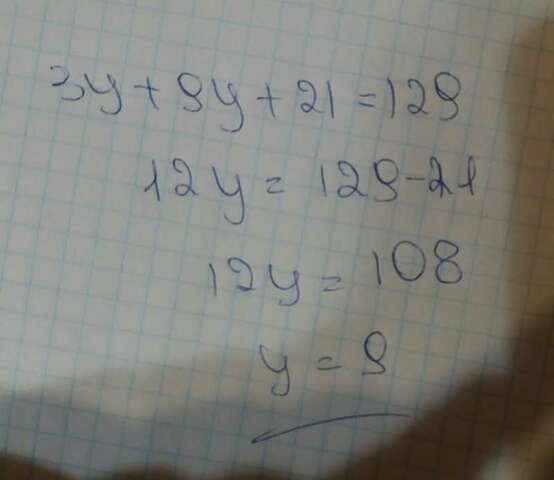 3y + 9y + 21 = 129
12y = 129 - 21
12y = 108
y = 9